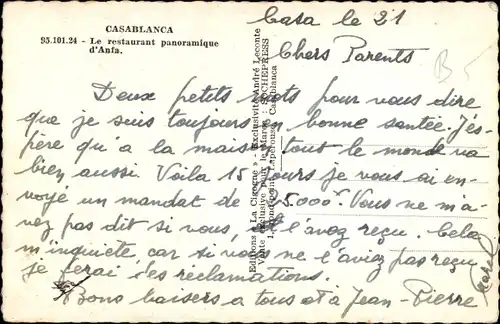 CASABLANCA
95.101.24 - Le restaurant panoramique
d'Anfa.
Casa le 21
Chers Parents
Deux petits mots pour vous dire
que je suis toujours en bonne santée. J'és-
père qu'a la maison tout le monde va
bien aussi. Voila 15 jours je vous ai en-
voyé un mandat de 5.000f. Vous ne m'a-
vez pas dit si vous l'avez reçu. Cela
m'inquiète, car si vous ne l'aviez pas reçu
je ferai des reclamations.
Bons baisers a tous et à Jean-Pierre
Editions « La Cigogne » - Exclusivité André Leconte
Vente exclusive pour le Maroc : SOCHEPRESS
1, Rond-point Lapérouse, Casablanca